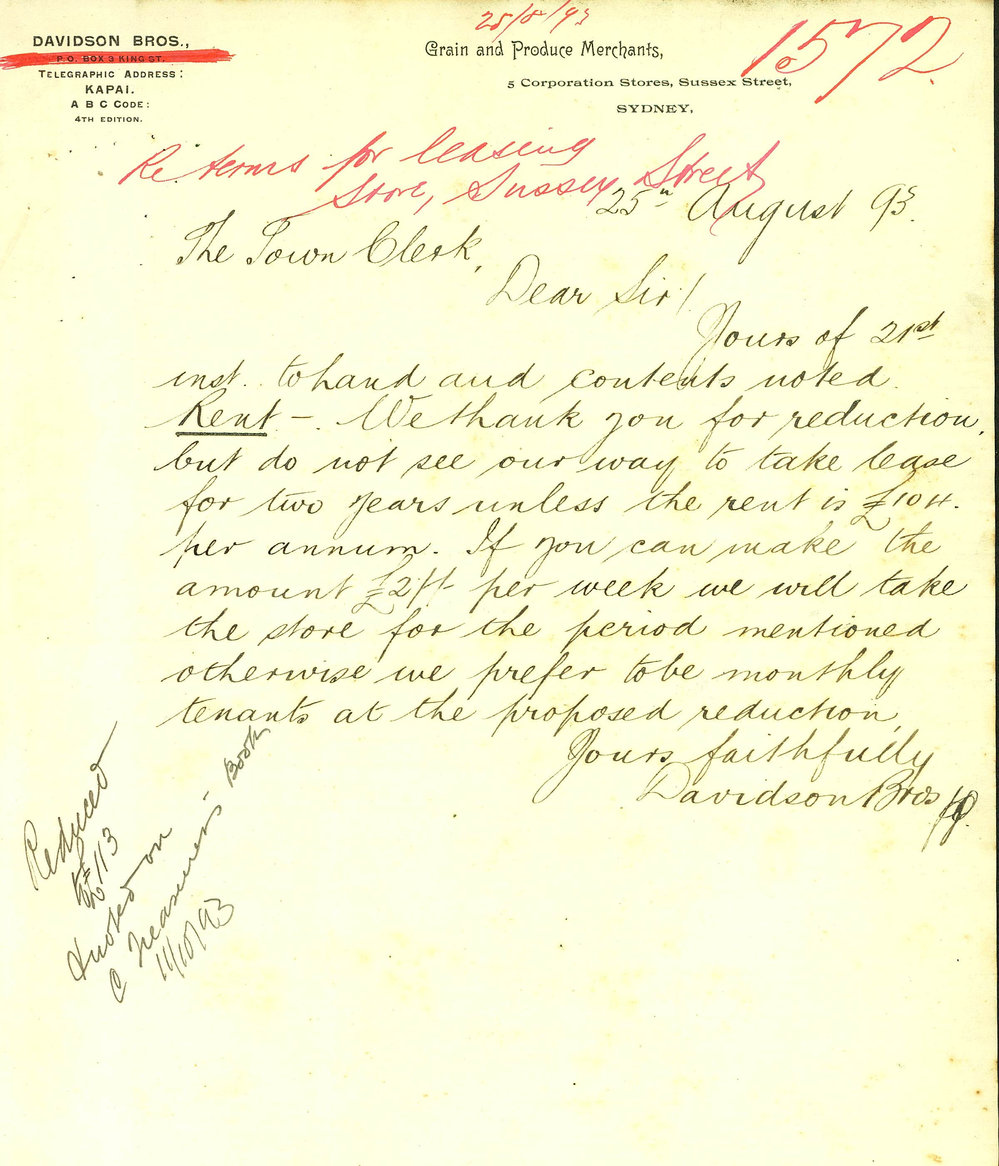 25/8/93
1572
DAVIDSON BROS.,
P.O. BOX 3 KING ST.
TELEGRAPHIC ADDRESS:
KAPAI.
A B C CODE:
4TH EDITION.
Grain and Produce Merchants,
5 Corporation Stores, Sussex Street,
SYDNEY,
Re terms for leasing
Store, Sussex Street
25th August 93.
The Town Clerk,
Dear Sir/
Yours of 21st
inst. to hand and contents noted.
Rent - We thank you for reduction,
but do not see our way to take lease
for two years unless the rent is £104.
per annum. If you can make the
amount £2/- per week we will take
the store for the period mentioned
otherwise we prefer to be monthly
tenants at the proposed reduction.
Yours faithfully
Davidson Bros
Reduced
to £113
on
C Treasurer's Book
11/10/93